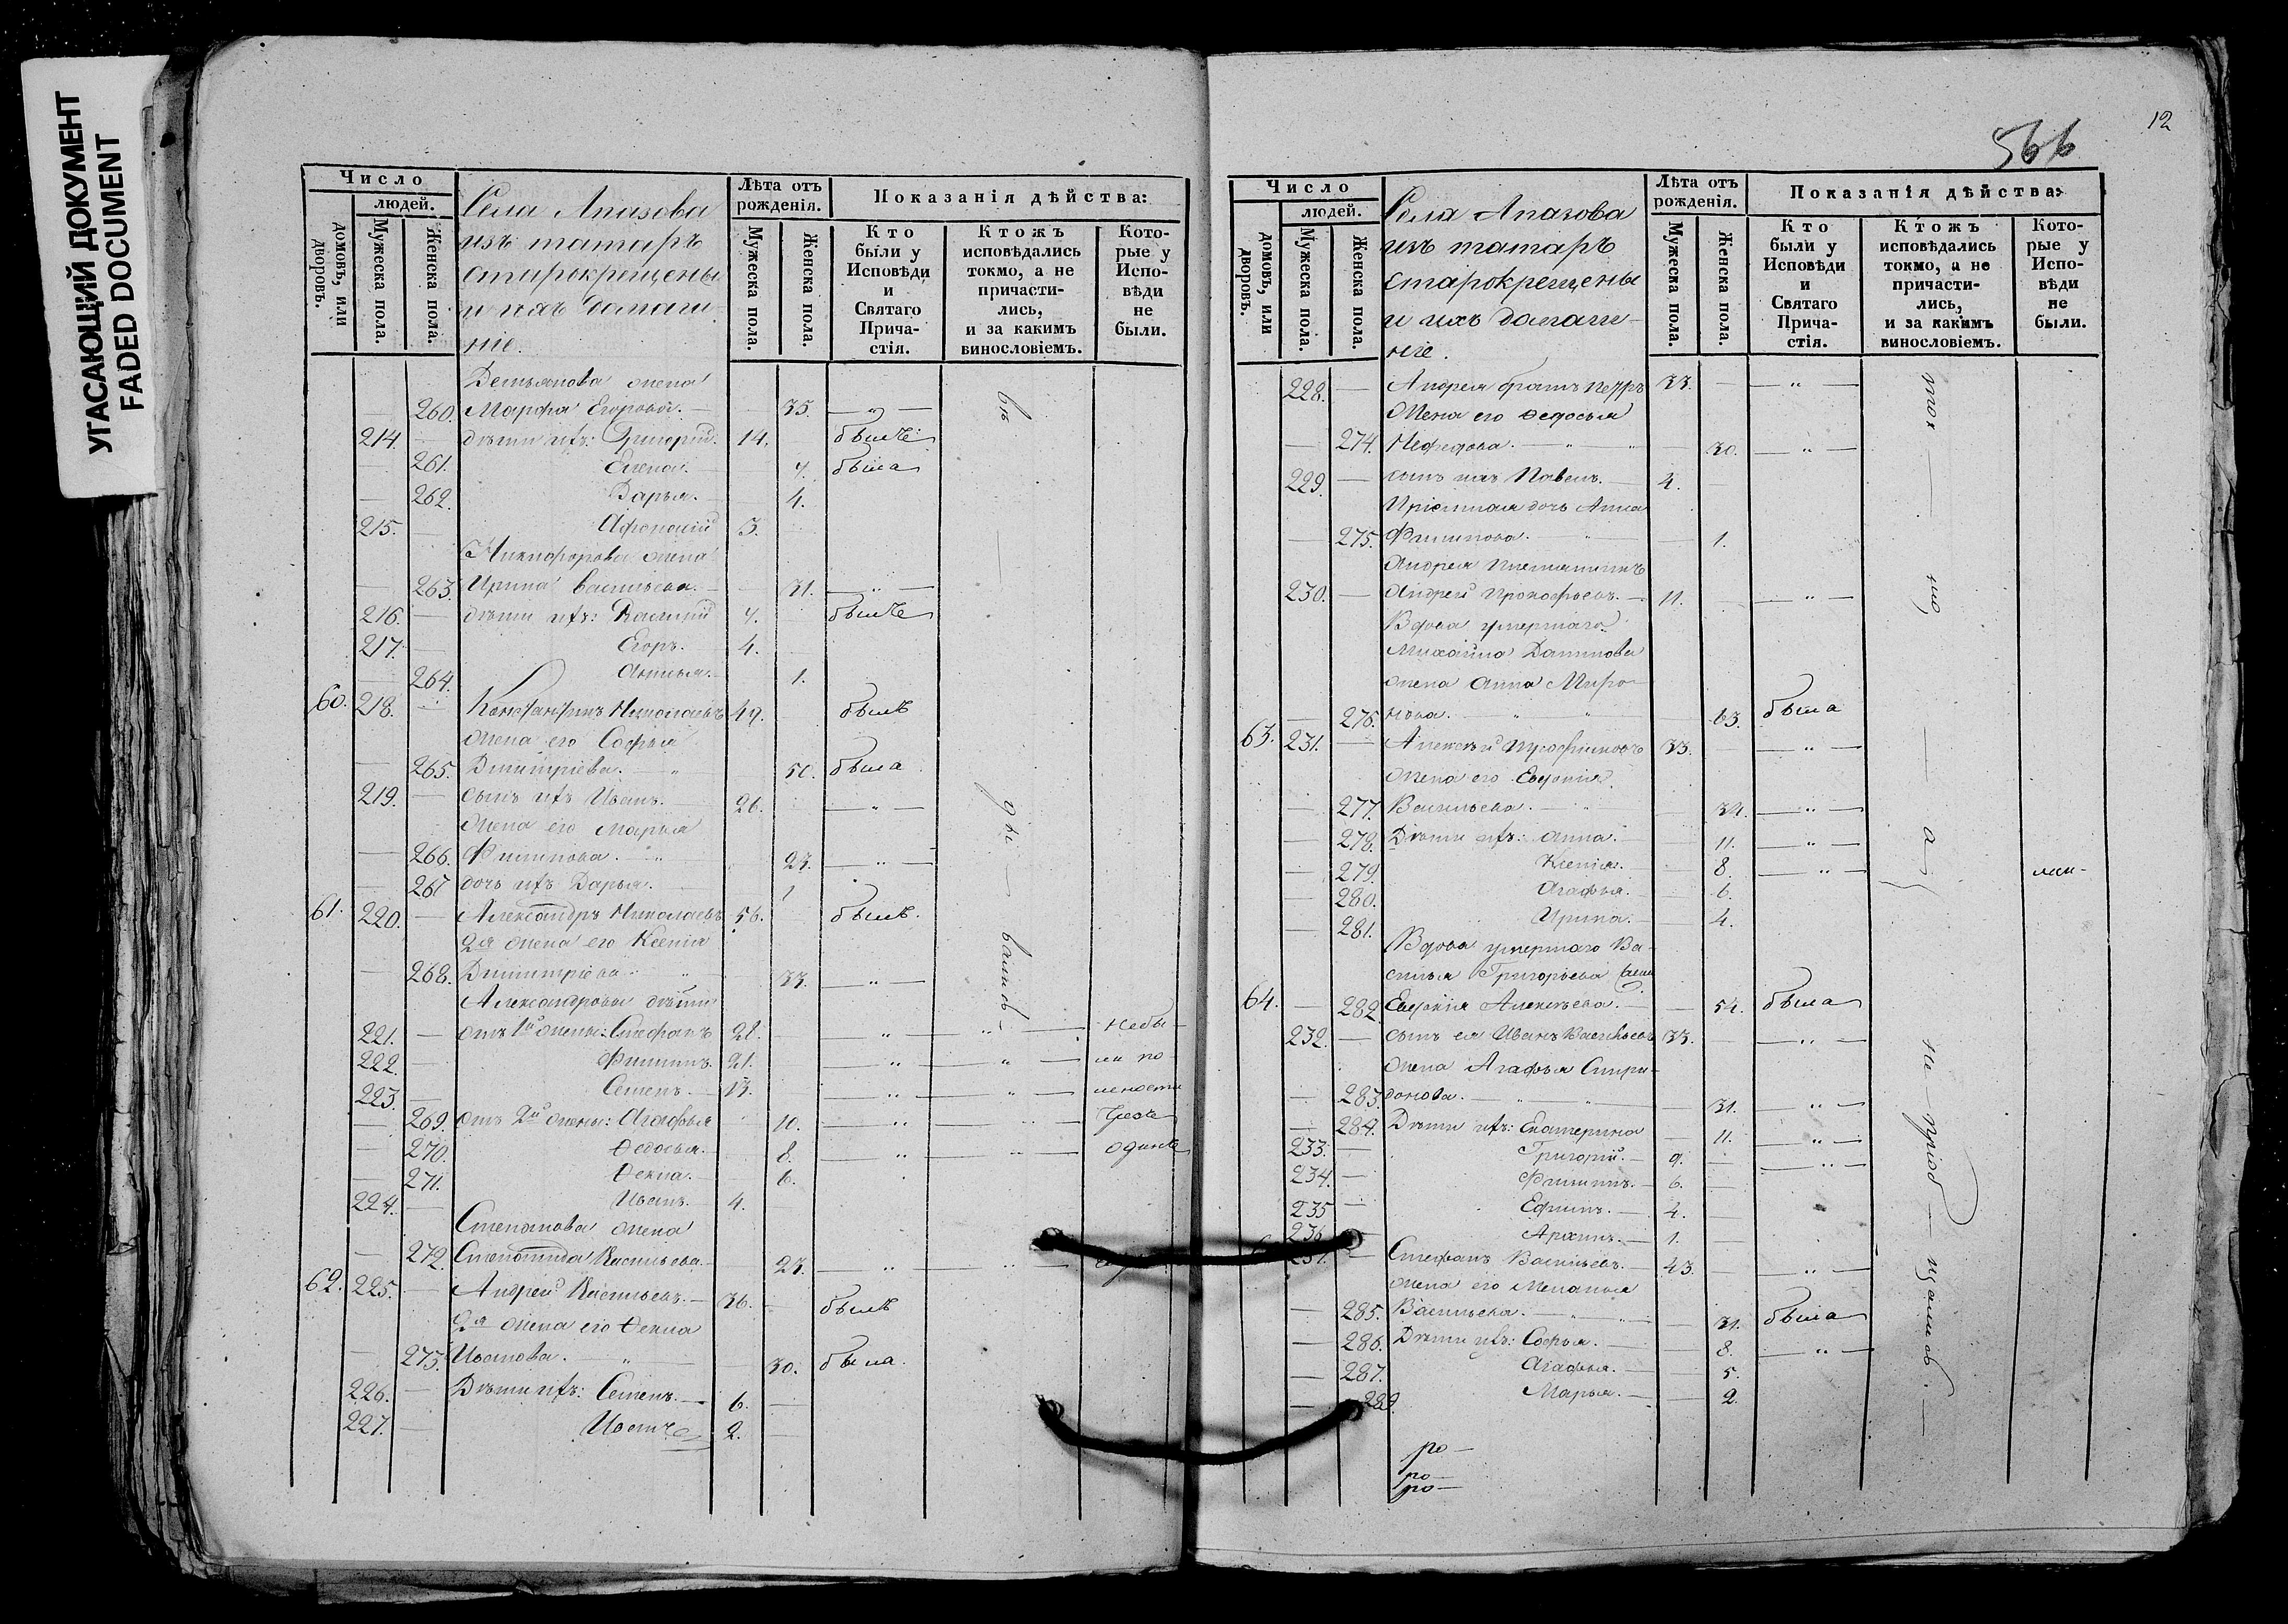 УГАСАЮЩИЙ ДОКУМЕНТ
FADED DOCUMENT
Число
людей.
домовъ, или дворовъ.
Мужеска пола.
Женска пола.
Села Апазова
изъ татаръ
старокрещены
и ихъ домаш
ніе.
Лѣта отъ рожденія.
Мужеска пола.
Женска пола.
Показанія дѣйства:
Кто были у Исповѣди и Святаго Причастія.
Ктожъ исповѣдались токмо, а не причастились, и за какимъ винословіемъ.
Которые у Исповѣди не были.
Демьянова жена
260. Марфа Егорова. — 35. — „ —
214. — дѣти ихъ: Григорій. 14. былъ
261. Елена. 7. была
262. Дарья. 4.
215. Афонасій 3.
Никифорова жена
263. Ирина Васильева. 31. — „ —
216. — дѣти ихъ: Василій 7. былъ
217. Егоръ. 4.
264. 1.
60. 218. — Константинъ Николаевъ 49. былъ
жена его Софья
265. Дмитріева. — „ 50. была
219. — сынъ ихъ Иванъ. 26. — „ —
жена его Марья
266. Филипова. „ 27. — „ —
267 дочь ихъ Дарья. 1
61. 220. — Александръ Николаевъ 56. былъ.
2я жена его Ксенія
268. Дмитріева. „ 33. — „ —
Александрова дѣти
221. — отъ 1й жены: Стефанъ 28. „ „ небы
222. — Филиппъ. 21. „ „ ли по
223. — Семенъ. 13. „ „ лености
269. отъ 2й жены: Агафья 10. „ „
270. Ѳедосья. 8. „ „ одинъ
271. Ѳекла. 6.
224. — Иванъ. 4.
Степанова жена
272. Степанида Васильева. 23. „ „
62. 225. — Андрей Васильевъ. 36. былъ
2я жена его Ѳекла
273. Иванова. — „ — 30. была.
226. — Дѣти ихъ: Семенъ. — 6. —
227. — Иванъ 2. —
566
12
Число
людей.
домовъ, или дворовъ.
Мужеска пола.
Женска пола.
Села Апазова
изъ татаръ
старокрещены
и ихъ домаш
ніе.
Лѣта отъ рожденія.
Мужеска пола.
Женска пола.
Показанія дѣйства:
Кто были у Исповѣди и Святаго Причастія.
Ктожъ исповѣдались токмо, а не причастились, и за какимъ винословіемъ.
Которые у Исповѣди не были.
228. — Андрея братъ Петръ 33. — — „ —
Жена его Ѳедосья
274. Нефедова. — „ — 30. — „ —
229. — сынъ ихъ Павелъ. 4. —
Пріемная дочь Анна
275. Филипова. „ 1.
Андрея племянникъ
230. — Андрей Прокофьевъ. — 11. — „ —
Вдова умершаго
Михайла Данилова
жена Анна Миро
276. нова. „ „ 63. была
63. 231. — Алексѣй 33. — „ —
жена его Евгенія
277. Васильева. — „ 34. — „ —
278. Дѣти ихъ: Анна. — 11. — „ —
279. Ксенія. — 8. — „ —
280. Агафья. — 6.
281. Ирина. — 4.
Вдова умершаго Ва
силья Григорьева
64. — 282. Евгенія Алексѣева. — 54. была
232. — сынъ ея Иванъ Васильевъ 33. — „ —
жена Агафья Спири
283. донова. — „ — „ 31. — „ —
284. Дѣти ихъ: Екатерина 11. — „ —
233. — Григорій. — 9. — — „ —
234. — Филиппъ. — 6. —
235 — Ефимъ. — 4. —
236 Архипъ. — 1.
237. — Стефанъ Васильевъ. — 43. — „ —
жена его Меланья
285. Васильева. — „ 31. была
286. Дѣти ихъ: Софья. — 8. — „ —
287. Агафья. — 5.
Марья. — 2.
ро —
ро —
ро —